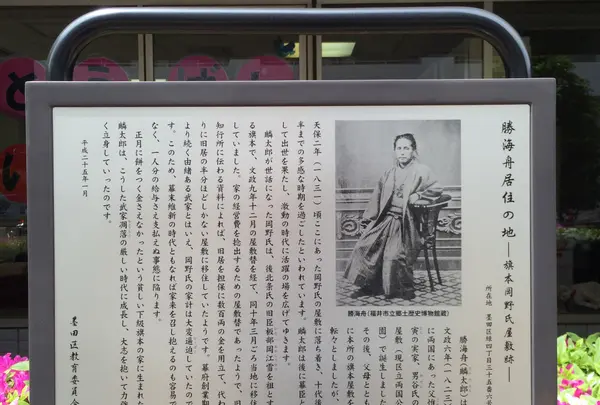 勝海舟居住の地―旗本岡野氏屋敷跡―
所在地 墨田区緑四丁目三十五番六号
勝海舟(麟太郎)は
文政六年(一八二三)
に両国にあった父惟
寅の実家、男谷氏の
屋敷(現区立両国公
園)で誕生しました。
その後、父母ととも
に本所の旗本屋敷を
転々としましたが、
勝海舟(福井市立郷土歴史博物館蔵)
天保二年(一八三一)頃ここにあった岡野氏の屋敷に落ち着き、十代後
半までの多感な時期を過ごしたといわれています。麟太郎は後に幕臣と
して出世を果たし、激動の時代に活躍の場を広げてゆきます。
麟太郎が世話になった岡野氏は、後北条氏の旧臣板部岡江雪を祖とす
る旗本で、文政九年十二月の屋敷替を経て、同十年三月ごろ当地に移
していました。家の経営費を捻出するための屋敷替であったようで、旧
知行所に伝わる資料によれば、旧居を担保に数百両の金を用立て、代わ
りに旧居の半分ほどしかない屋敷に移住していたようです。幕府創業期
より続く由緒ある武家とはいえ、岡野氏の家計は大変逼迫していたので
す。このため、幕末維新の時代ともなれば家来を召し抱えるのも容易で
なく、一人分の給与さえ支払えぬ事態に陥ります。
正月に餅をつく金さえなかったという貧しい下級旗本の家に生まれた
麟太郎は、こうした武家凋落の厳しい時代に成長し、大志を抱いて力強
く立身していったのです。
平成二十五年一月
墨田区教育委員会